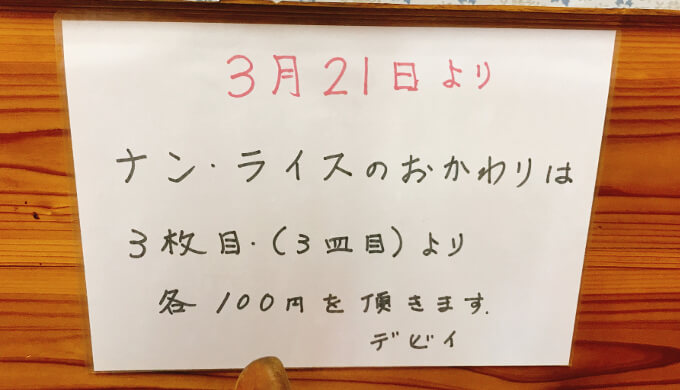 3月21日より
ナン・ライスのおかわりは
3枚目・(3皿目)より
各100円を頂きます.
デビィ